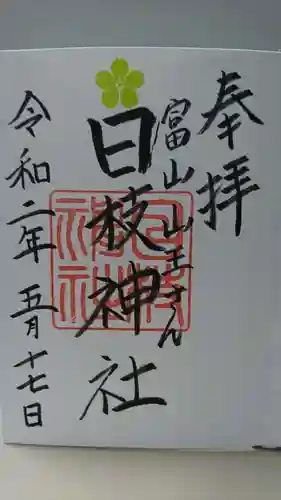 奉拝
富山山王さん
日枝神社
令和二年 五月十七日
日枝神社